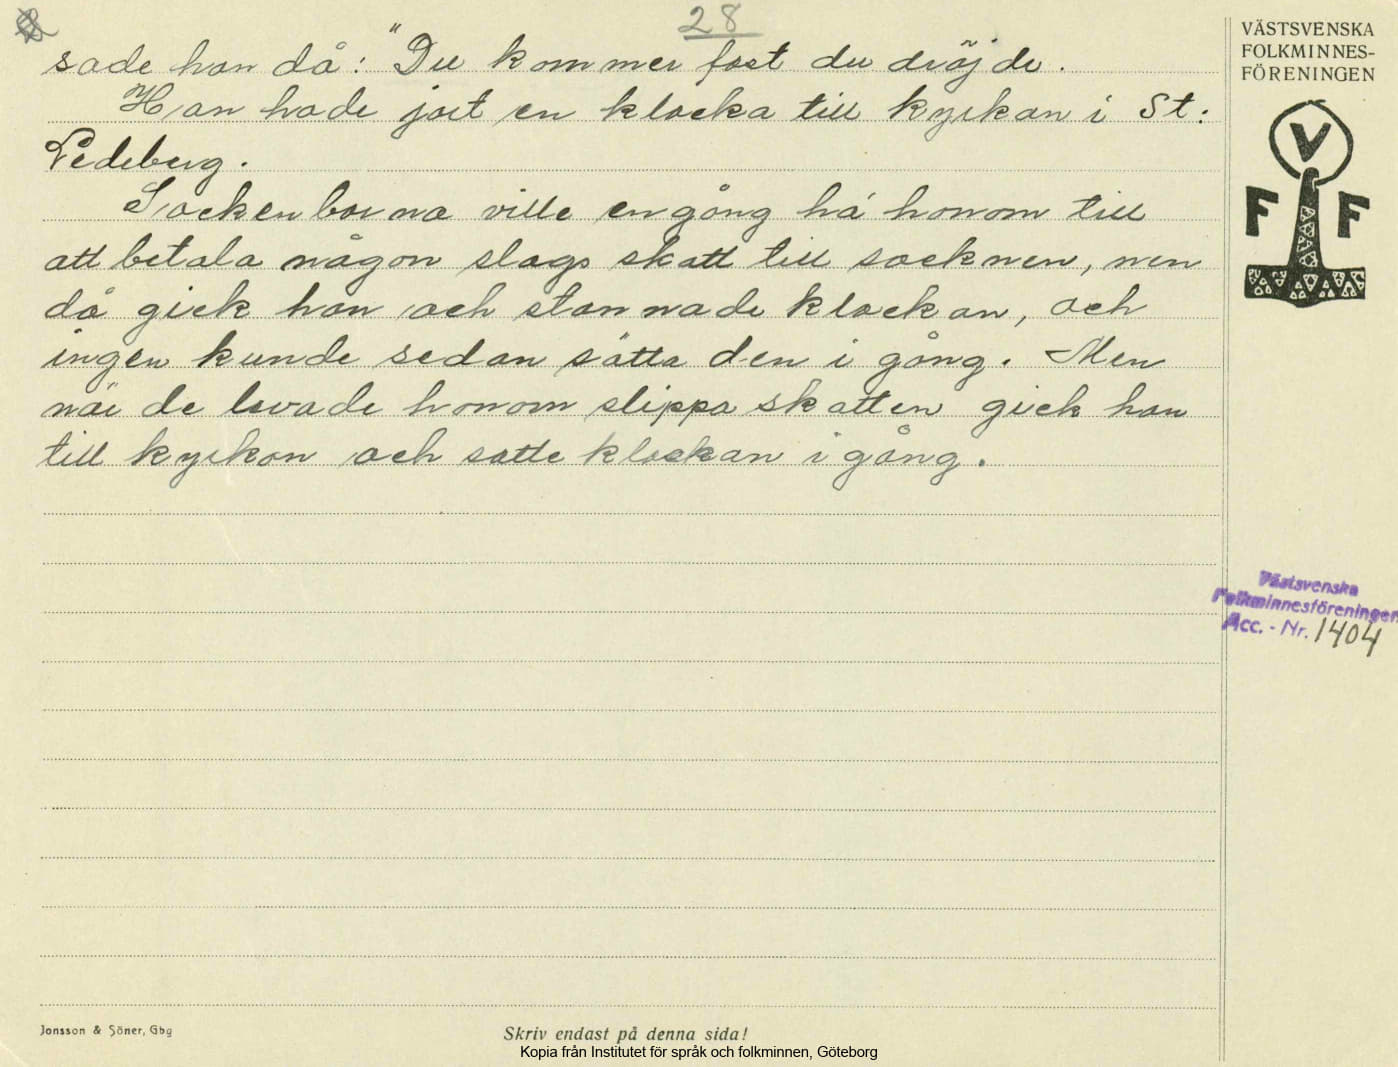 28
sade han då: "Du kommer fast du dröjde.
Han hade jort en klocka till kyrkan i St:
Ledeberg.
Sockenborna ville en gång há honom till
att betala någon slags skatt till socknen, men
då gick han och stannade klockan, och
ingen kunde sedan sätta den i gång. Men
när de lovade honom slippa skatten gick han
till kyrkan och satte klockan i gång.
VÄSTSVENSKA
FOLKMINNES-
FÖRENINGEN
V
F F
Västsvenska
Folkminnesföreningen
Acc. - Nr. 1404
Jonsson & Söner, Gbg
Skriv endast på denna sida!
Kopia från Institutet för språk och folkminnen, Göteborg